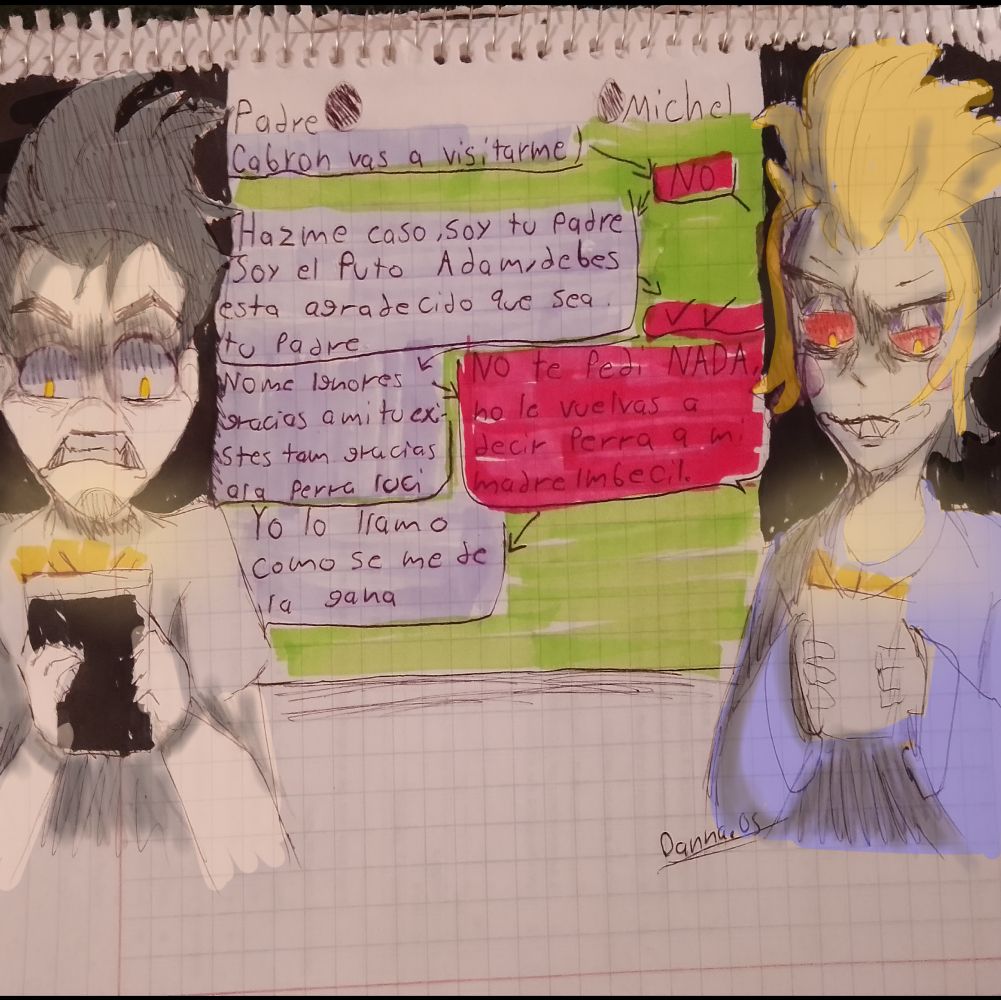 Padre
Michel
Cabron vas a visitarme!
NO
Hazme caso, soy tu Padre
Soy el Puto Adam, debes
esta agradecido que sea.
tu Padre
✓✓
No me Ignores
gracias a mi tu exi-
stes tam gracias
a la Perra luci
NO te Pedi NADA,
no le vuelvas a
decir Perra a mi
madre Imbecil.
Yo lo llamo
como se me de
la gana
Danna.OS